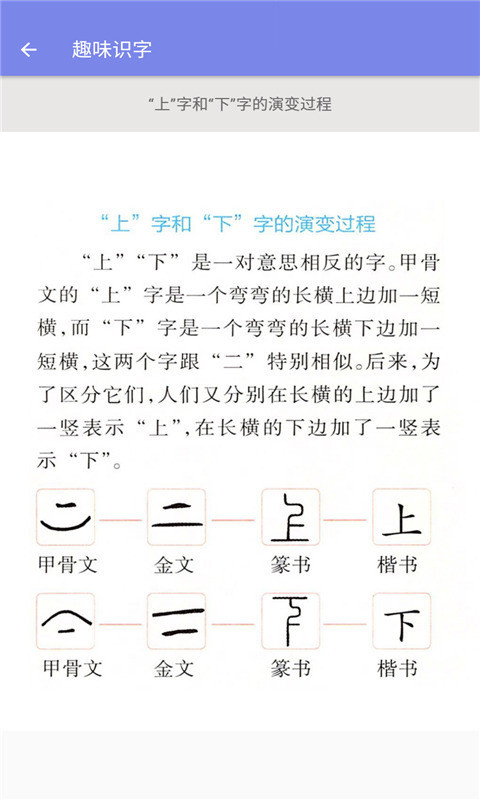 趣味识字
“上”字和“下”字的演变过程
“上”字和“下”字的演变过程
“上”“下”是一对意思相反的字。甲骨
文的“上”字是一个弯弯的长横上边加一短
横,而“下”字是一个弯弯的长横下边加一
短横,这两个字跟“二”特别相似。后来,为
了区分它们,人们又分别在长横的上边加了
一竖表示“上”,在长横的下边加了一竖表
示“下”。
二 二 上 上
甲骨文 金文 篆书 楷书
下
甲骨文 金文 篆书 楷书